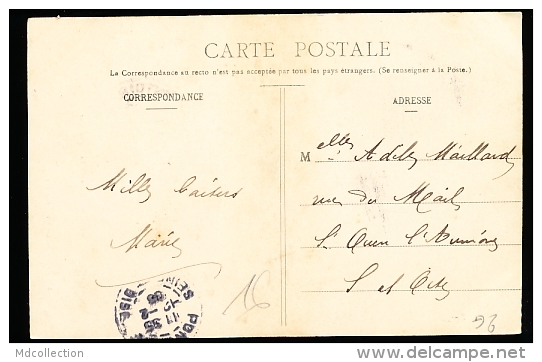 CARTE POSTALE
La Correspondance au recto n'est pas acceptée par tous les pays étrangers. (Se renseigner à la Poste.)
CORRESPONDANCE
ADRESSE
Mille baisers
Marie
Melles Adèle Maillard
rue du Mail
St Ouen l'Aumône
S et Oise
16
96
Mdcollection
delcampe.net